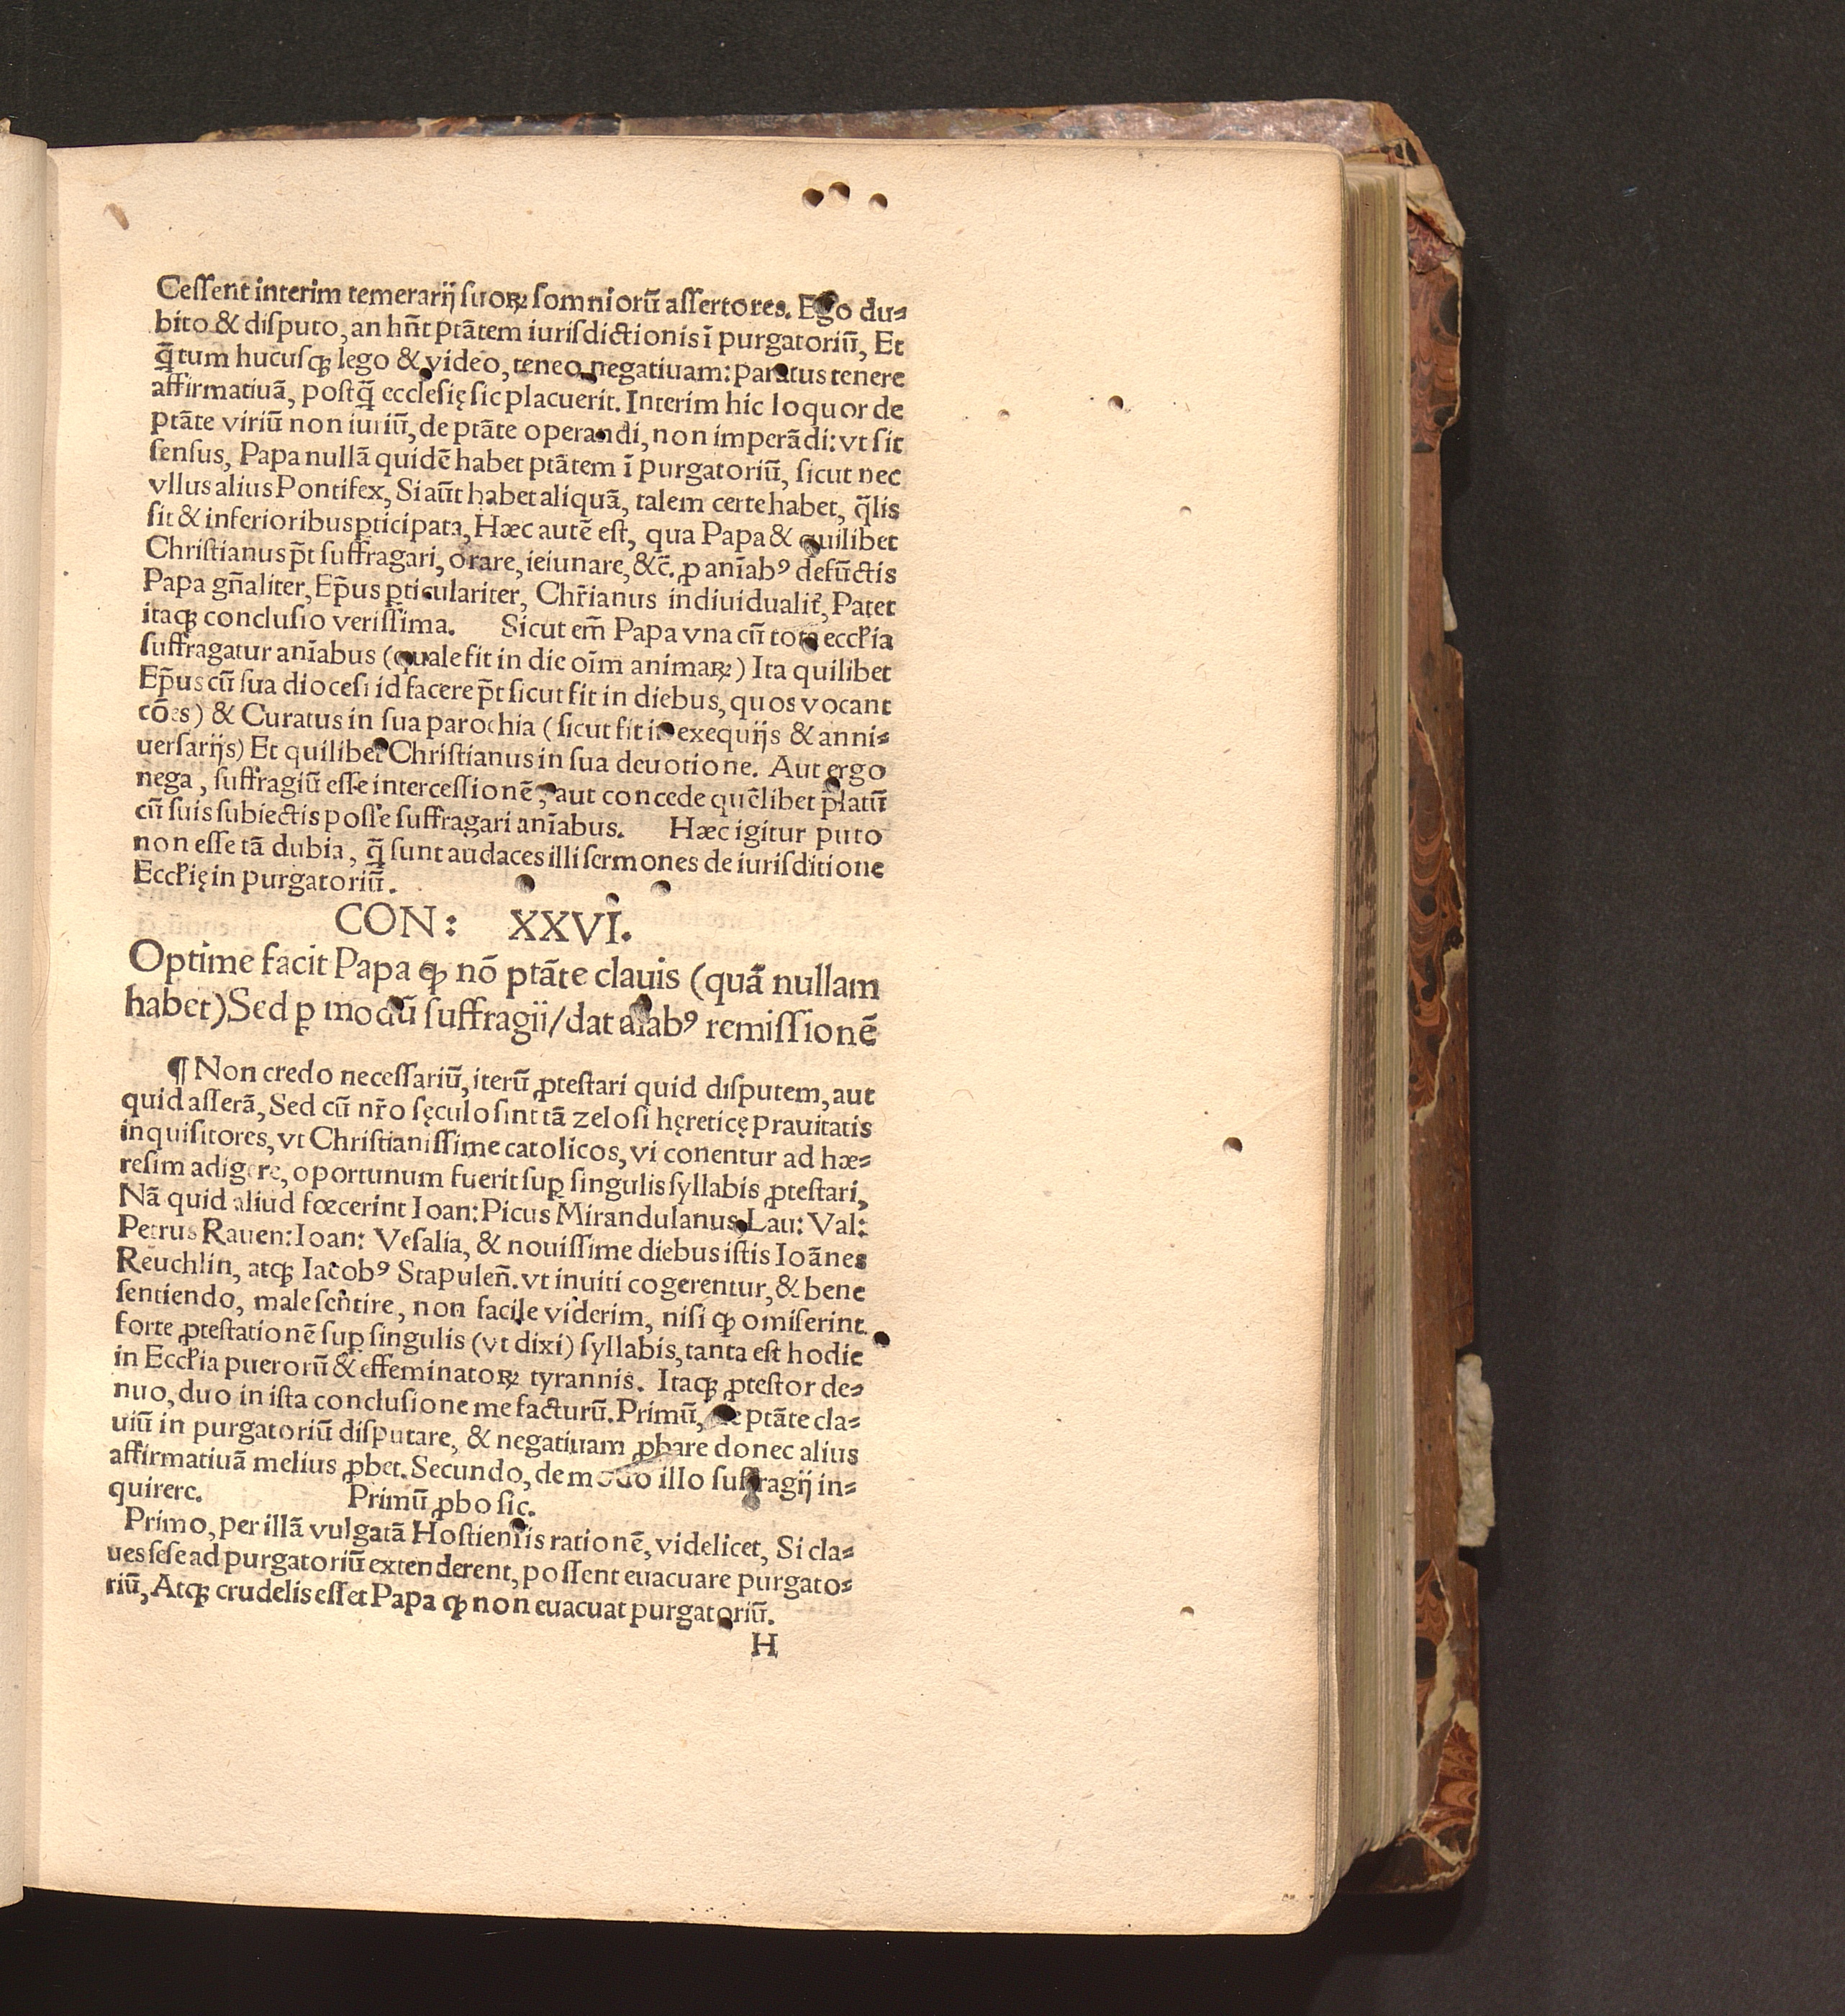 Ceſſent interim temerarij ſuoꝝ ſomniorū aſſertores. Ego du⸗
bito & diſputo, an hñt ptātem iuriſdictionis ī purgatoriū, Et
q̄tum hucuſqꝫ lego & video, teneo negatiuam: paratus tenere
affirmatiuā, poſtq̄ eccleſię ſic placuerit. Interim hic loquor de
ptāte viriū non iuriū, de ptāte operandi, non imperādi: vt ſit
ſenſus, Papa nullā quidē habet ptātem ī purgatoriū, ſicut nec
vllus alius Pontifex, Si aūt habet aliquā, talem certe habet, q̄lis
ſit & inferioribus ꝑticipata, Hæc autē eſt, qua Papa & quilibet
Chriſtianus p̄t ſuffragari, orare, ieiunare, &c̄. ꝓ anīabꝰ defūctis
Papa gñaliter, Ep̄us ꝑticulariter, Chr̄ianus indiuidualit̄, Patet
itaqꝫ concluſio veriſſima. Sicut em̄ Papa vna cū tota eccľia
ſuffragatur anīabus (quale fit in die oīm animaꝝ) Ita quilibet
Ep̄us cū ſua dioceſi id facere p̄t ſicut fit in diebus, quos vocant
cōes) & Curatus in ſua parochia (ſicut fit in exequijs & anni⸗
uerſarijs) Et quilibet Chriſtianus in ſua deuotione. Aut ergo
nega, ſuffragiū eſſe interceſſionē, aut concede quēlibet p̄latū
cū ſuis ſubiectis poſſe ſuffragari anīabus. Hæc igitur puto
non eſſe tā dubia, q̄ ſunt audaces illi ſermones de iuriſditione
Eccľię in purgatoriū.
CON: XXVI.
Optime facit Papa ꝙ nō ptāte clauis (quā nullam
habet) Sed ꝑ modū ſuffragii/dat aīabꝰ remiſſionē
¶ Non credo neceſſariū, iterū ꝓteſtari quid diſputem, aut
quid aſſerā, Sed cū nr̄o ſęculo ſint tā zeloſi hęreticę prauitatis
inquiſitores, vt Chriſtianiſſime catolicos, vi conentur ad hæ⸗
reſim adigere, oportunum fuerit ſuꝑ ſingulis ſyllabis ꝓteſtari,
Nā quid aliud fœcerint Ioan: Picus Mirandulanus, Lau: Val:
Petrus Rauen: Ioan: Veſalia, & nouiſſime diebus iſtis Ioānes
Reuchlin, atqꝫ Iacobꝰ Stapuleñ. vt inuiti cogerentur, & bene
ſentiendo, male ſentire, non facile viderim, niſi ꝙ omiſerint
forte ꝓteſtationē ſuꝑ ſingulis (vt dixi) ſyllabis, tanta eſt hodie
in Eccľia puerorū & effeminatoꝝ tyrannis. Itaqꝫ ꝓteſtor de⸗
nuo, duo in iſta concluſione me facturū. Primū, de ptāte cla⸗
uiū in purgatoriū diſputare, & negatiuam ꝓbare donec alius
affirmatiuā melius ꝓbet. Secundo, de modo illo ſuffragij in⸗
quirere. Primū ꝓbo ſic.
Primo, per illā vulgatā Hoſtienſis rationē, videlicet, Si cla⸗
ues ſeſe ad purgatoriū extenderent, poſſent euacuare purgato⸗
riū, Atqꝫ crudelis eſſet Papa ꝙ non euacuat purgatoriū.
H